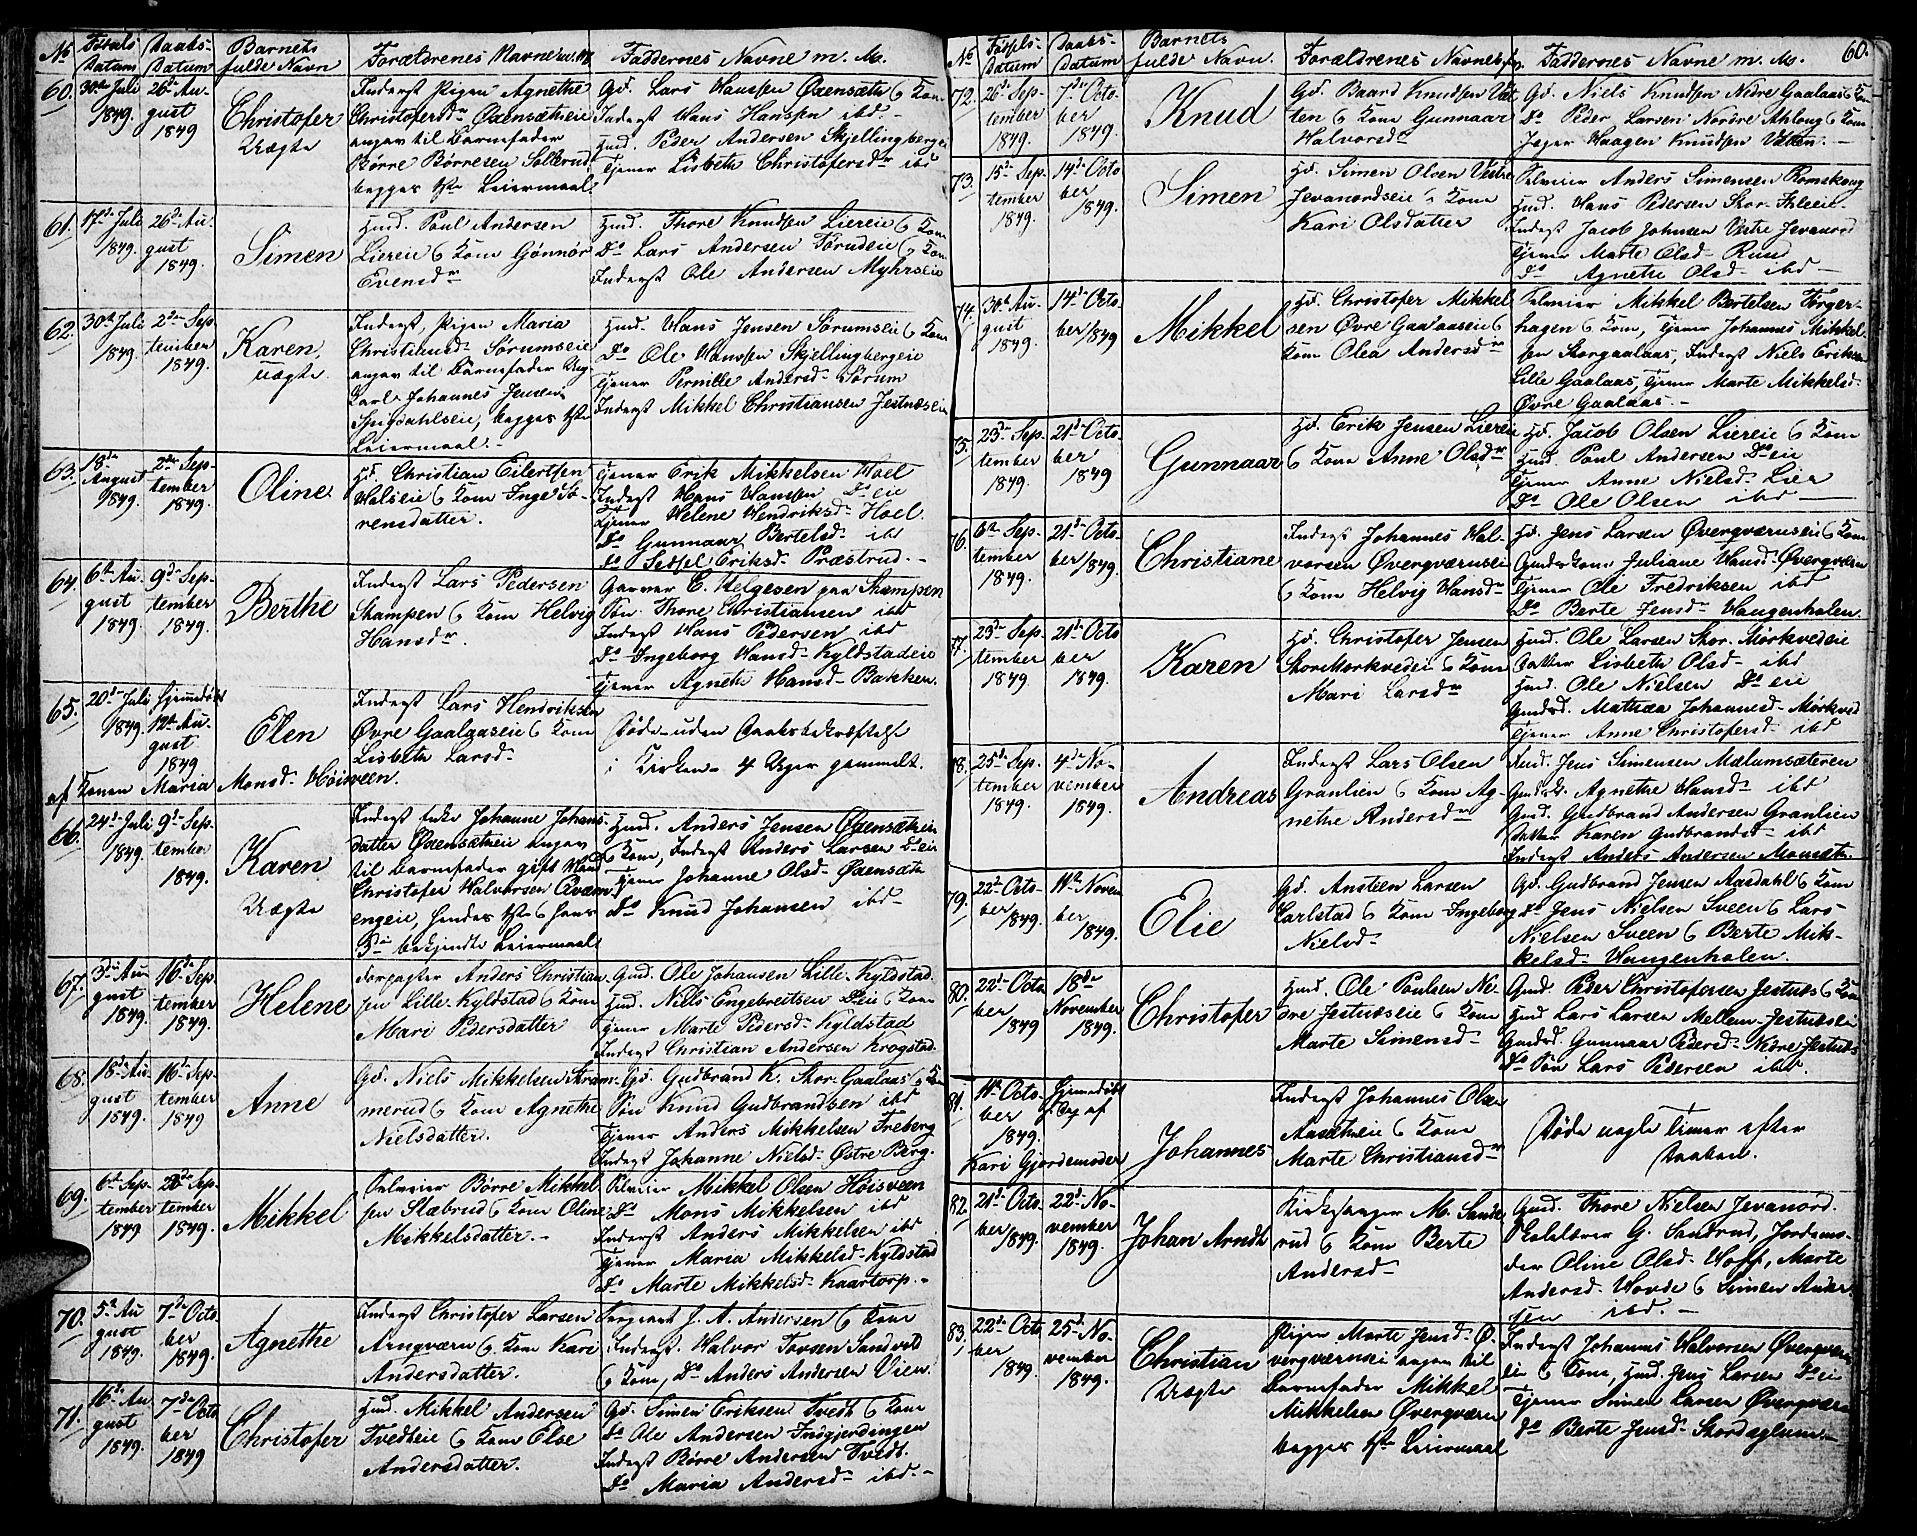 No Fødsels- Daabs- Barnets
Datum Datum fulde Navn Forældrenes Navne m. M. Faddernes Navne m. M.
60. 30te Juli 1849. 26de August 1849 Christofer Uægte
Inderst Pigen Agnethe
Christofersdr Oxensætheie
angav til Barnefader
Børre Børresen Sollerud,
begges 1ste Leiermaal.
Gd. Lars Hanssen Oxensæth & Kone
Inderst Hans Hanssen ibd.
Huusmd. Peder Andersen Skjellingbergeie
Tjener Lisbeth Christofersdr ibd
61. 17de Juli 1849. 26de August 1849. Simen
Huusmd. Poul Andersen
Liereie & Kone Gønnor
Evensdr
Huusmd. Thore Knudsen Liereie & Kone
Do Lars Andersen Førudeie & Kone
Inderst Ole Andersen Myhrseie
62. 30te Juli 1849. 2den September 1849. Karen, uægte.
Inderst, Pigen Maria
Christiansd. Sørumseie
angav til Barnefader Ung-
karl Johannes Jensen
Spigdahlseie, begges 1ste
Leiermaal.
Huusmd. Hans Jensen Sørumseie & Kone
Do Ole Hanssen Skjellingbergeie
Tjener Pernille Andersd. Sørum
Inderst Mikkel Christiansen Jestnæseie
63. 18de August 1849. 2den September 1849. Oline
Hd. Christian Eilertsen
Halseie & Kone Inge Sø-
rensdatter.
Tjener Erik Mikkelsen Hoel
Inderst Hans Hanssen Do eie
Tjener Helene Hendriksd. Hoel
Do Gunnaar Bertelsd. ibd
Do Sedsel Eriksd. Præstrud.
64. 6te August 1849. 9de September 1849. Berthe
Inderst Lars Pedersen
Stampen & Kone Helvig
Hansdr
Garver C. Helgesen paa Stampen
Søn Thore Christiansen ibd
Inderst Hans Pedersen ibd
Do Ingeborg Hansd. Kyldstadeie
Tjener Agnethe Hansd. Bakken.
65. 20de Juli 1849. Hjemdøbt 12te August 1849 Elen
Inderst Lars Hendriksen
Øvre Gaalaaseie & Kone
Lisbeth Larsd.
Døde uden Daabsbekræftelse
i Kirken 4 Uger gammelt.
af Konen Maria Monsd. Høisveen.
66. 24de Juli 1849. 9de September 1849. Karen Uægte
Inderst Enke Johanne Johans-
datter Oxensætheie angav
til Barnefader gift Mand
Christofer Halvorsen
engeie, hendes 1ste & hans
3die bekjendte Leiermaal
Huusmd. Anders Jensen Oxensætheie
& Kone, Inderst Anders Larsen Do eie
Tjener Johanne Olsd. Oxensæth
Do Knud Johansen ibd
67. 3die August 1849. 16de September 1849. Helene
Forpagter Anders Christian-
sen Lille Kyldstad & Kone
Mari Pedersdatter
Gmd. Ole Johansen Lille Kyldstad.
Huusmd. Niels Engebretsen Do eie & Kone
Tjener Marte Pedersd. Kyldstad
Inderst Christian Andersen Krogstad.
68. 18de August 1849. 16de September 1849 Anne
Gd. Niels Mikkelsen Stram-
merud & Kone Agnethe
Nielsdatter.
Gd. Gudbrand K. Stor-Gaalaas & Kone
Søn Knud Gudbrandsen ibd
Tjener Anders Mikkelsen Freberg
Inderst Johanne Nielsd. Østre Berg.
69. 6te September 1849 23de September 1849. Mikkel
Selveier Børre Mikkel-
sen Stæbrud & Kone Oline
Mikkelsdatter.
Selveier Mikkel Olsen Høisveen
Do Mons Mikkelsen ibd
Inderst Anders Mikkelsen ibd
Tjener Maria Mikkelsd. Kyldstad
Do Marte Mikkelsd. Kaartorp.
70. 5te August 1849. 7de October 1849. Agnethe
Inderst Christofer Larsen
Arngværn & Kone Kari
Andersdatter.
Sergeant J. A. Andersen & Kone
Inderst Halvor Tovsen Sandvold
& Kone, Do Anders Andersen Vien.
71. 16de August 1849. 7de October 1849 Christofer
Huusmd. Mikkel Andersen
Tvedteie & Kone Else
Andersdatter.
Gd. Simen Eriksen Tvedt & Kone
Do Ole Andersen Indgjerdingen
Inderst Børre Andersen Tvedt.
Do Maria Andersd. ibd.
60.
No Fødsels- Daabs- Barnets
Datum Datum fulde Navn. Forældrenes Navne Faddernes Navne m. M.
72. 26de September 1849. 7de October 1849. Knud
Gd. Baard Knudsen Væt-
ten & Kone Gunnaar
Halvorsdr
Gd. Niels Knudsen Nedre Gaalaas & Kone
Do Peder Larsen Nordre Ahlong & Kone
Jæger Haagen Knudsen Vætten.
73. 15de September 1849. 14de October 1849. Simen
Hd. Simen Olsen Vestre
Jevanordseie & Kone
Kari Olsdatter
Selveier Anders Simensen Romskoug
Huusmd. Hans Pedersen
Inderst Jacob Johnsen Vestre Jevanord
Tjener Marte Olsd. Ruud
Do Agnethe Olsd. ibd
74. 30te August 1849. 14de October 1849 Mikkel
Hd. Christofer Mikkel-
sen Øvre Gaalaaseie &
Kone Olea Andersdr
Selveier Mikkel Bertelsen Torger-
hagen & Kone, Tjener Johannes Mikkel-
sen Storgaalaas, Inderst Niels Eriksen
Lille Gaalaas, Tjener Marte Mikkelsd.
Øvre Gaalaas.
75. 23de September 1849. 21de October 1849 Gunnaar
Hd. Erik Jensen Liereie
& Kone Anne Olsdr
Hd. Jacob Olsen Liereie & Kone
Huusmd. Poul Andersen Do eie
Tjener Anne Nielsd. Lier
Do Ole Olsen ibd
76. 6te September 1849. 21de October 1849. Christiane
Inderst Johannes Hal-
vorsen Øvergværnseie
& Kone Helvig Hansdr
Hd. Jens Larsen Øvergværnseie & Kone
Gaardkone Juliane Hansd. Øvergværn
Tjener Ole Fredriksen ibd
Do Berte Jensdr Hangenholen.
77. 23de September 1849 21de October 1849. Karen
Hd. Christofer Jensen
Stor Mørkvedeie & Kone
Mari Larsdr
Huusmd. Ole Larsen Stor-Mørkvedeie
Datter Lisbeth Olsd. ibd
Huusmd. Ole Nielsen Do eie
Gaardd. Mathea Johannesd. Mørkved
Tjener Anne Christofersd. ibd
78. 25de September 1849. 4de November 1849. Andreas
Inderst Lars Olsen
Granlien & Kone Ag-
nethe Andersdr
Huusmd. Jens Simensen Mælumsæteren
Agnethe Hansd. ibd
Gmd. Gudbrand Andersen Granlien
Datter Karen Gudbrandsd. ibd
Inderst Anders Andersen
79. 22de October 1849. 11te November 1849. Elie
Gd. Anstien Larsen
Carlstad & Kone Ingeborg
Nielsd.
Gd. Gudbrand Jensen Aasdahl & Kone
Do Jens Nielsen Sveen & Lars
Nielsen Sveen & Berte Mik-
kelsd. Hangenholen.
80. 22de October 1849 18de November 1849. Christofer
Huusmd. Ole Poulsen Ne-
dre Jestnæseie & Kone
Marte Simensd.
Gmd. Peder Christofersen Jestnæs & Kone
Huusmd Lars Larsen Mellem-Jestnæseie
Gaardd. Gunnaar Pedersd. Nedre Jestnæs
Do Søn Lars Pedersen ibd.
81. 11te October 1849. Hjemdøbt s. Dag af Kari Gjordemoder Johannes
Inderst Johannes Olsen
Aasætheie & Kone
Marte Christiansdr
Døde nogle Timer efter
Daaben.
82. 21de October 1849. 22de November 1849. Johan Arndt
Kirkesanger M. Sande-
rud & Kone Berte
Andersd.
Gmd. Thore Nielsen Jevanord.
Skolelærer G. Sandrud, Jordemo-
der Oline Olsd. Hoff, Marte
Andersd. Hovde & Simen Ander-
sen ibd.
83. 22de October 1849. 25de November 1849. Christian Uægte
Pigen Marte Jensd. Ø-
vergværnseie angav til
Barnefader Mikkel
Mikkelsen Øvergværn
begges 1ste Leiermaal
Inderst Johannes Halvorsen Øvergværns-
eie & Kone, Huusmd. Jens Larsen Do eie
Tjener Simen Larsen Øvergværn
Do Berte Jensd.